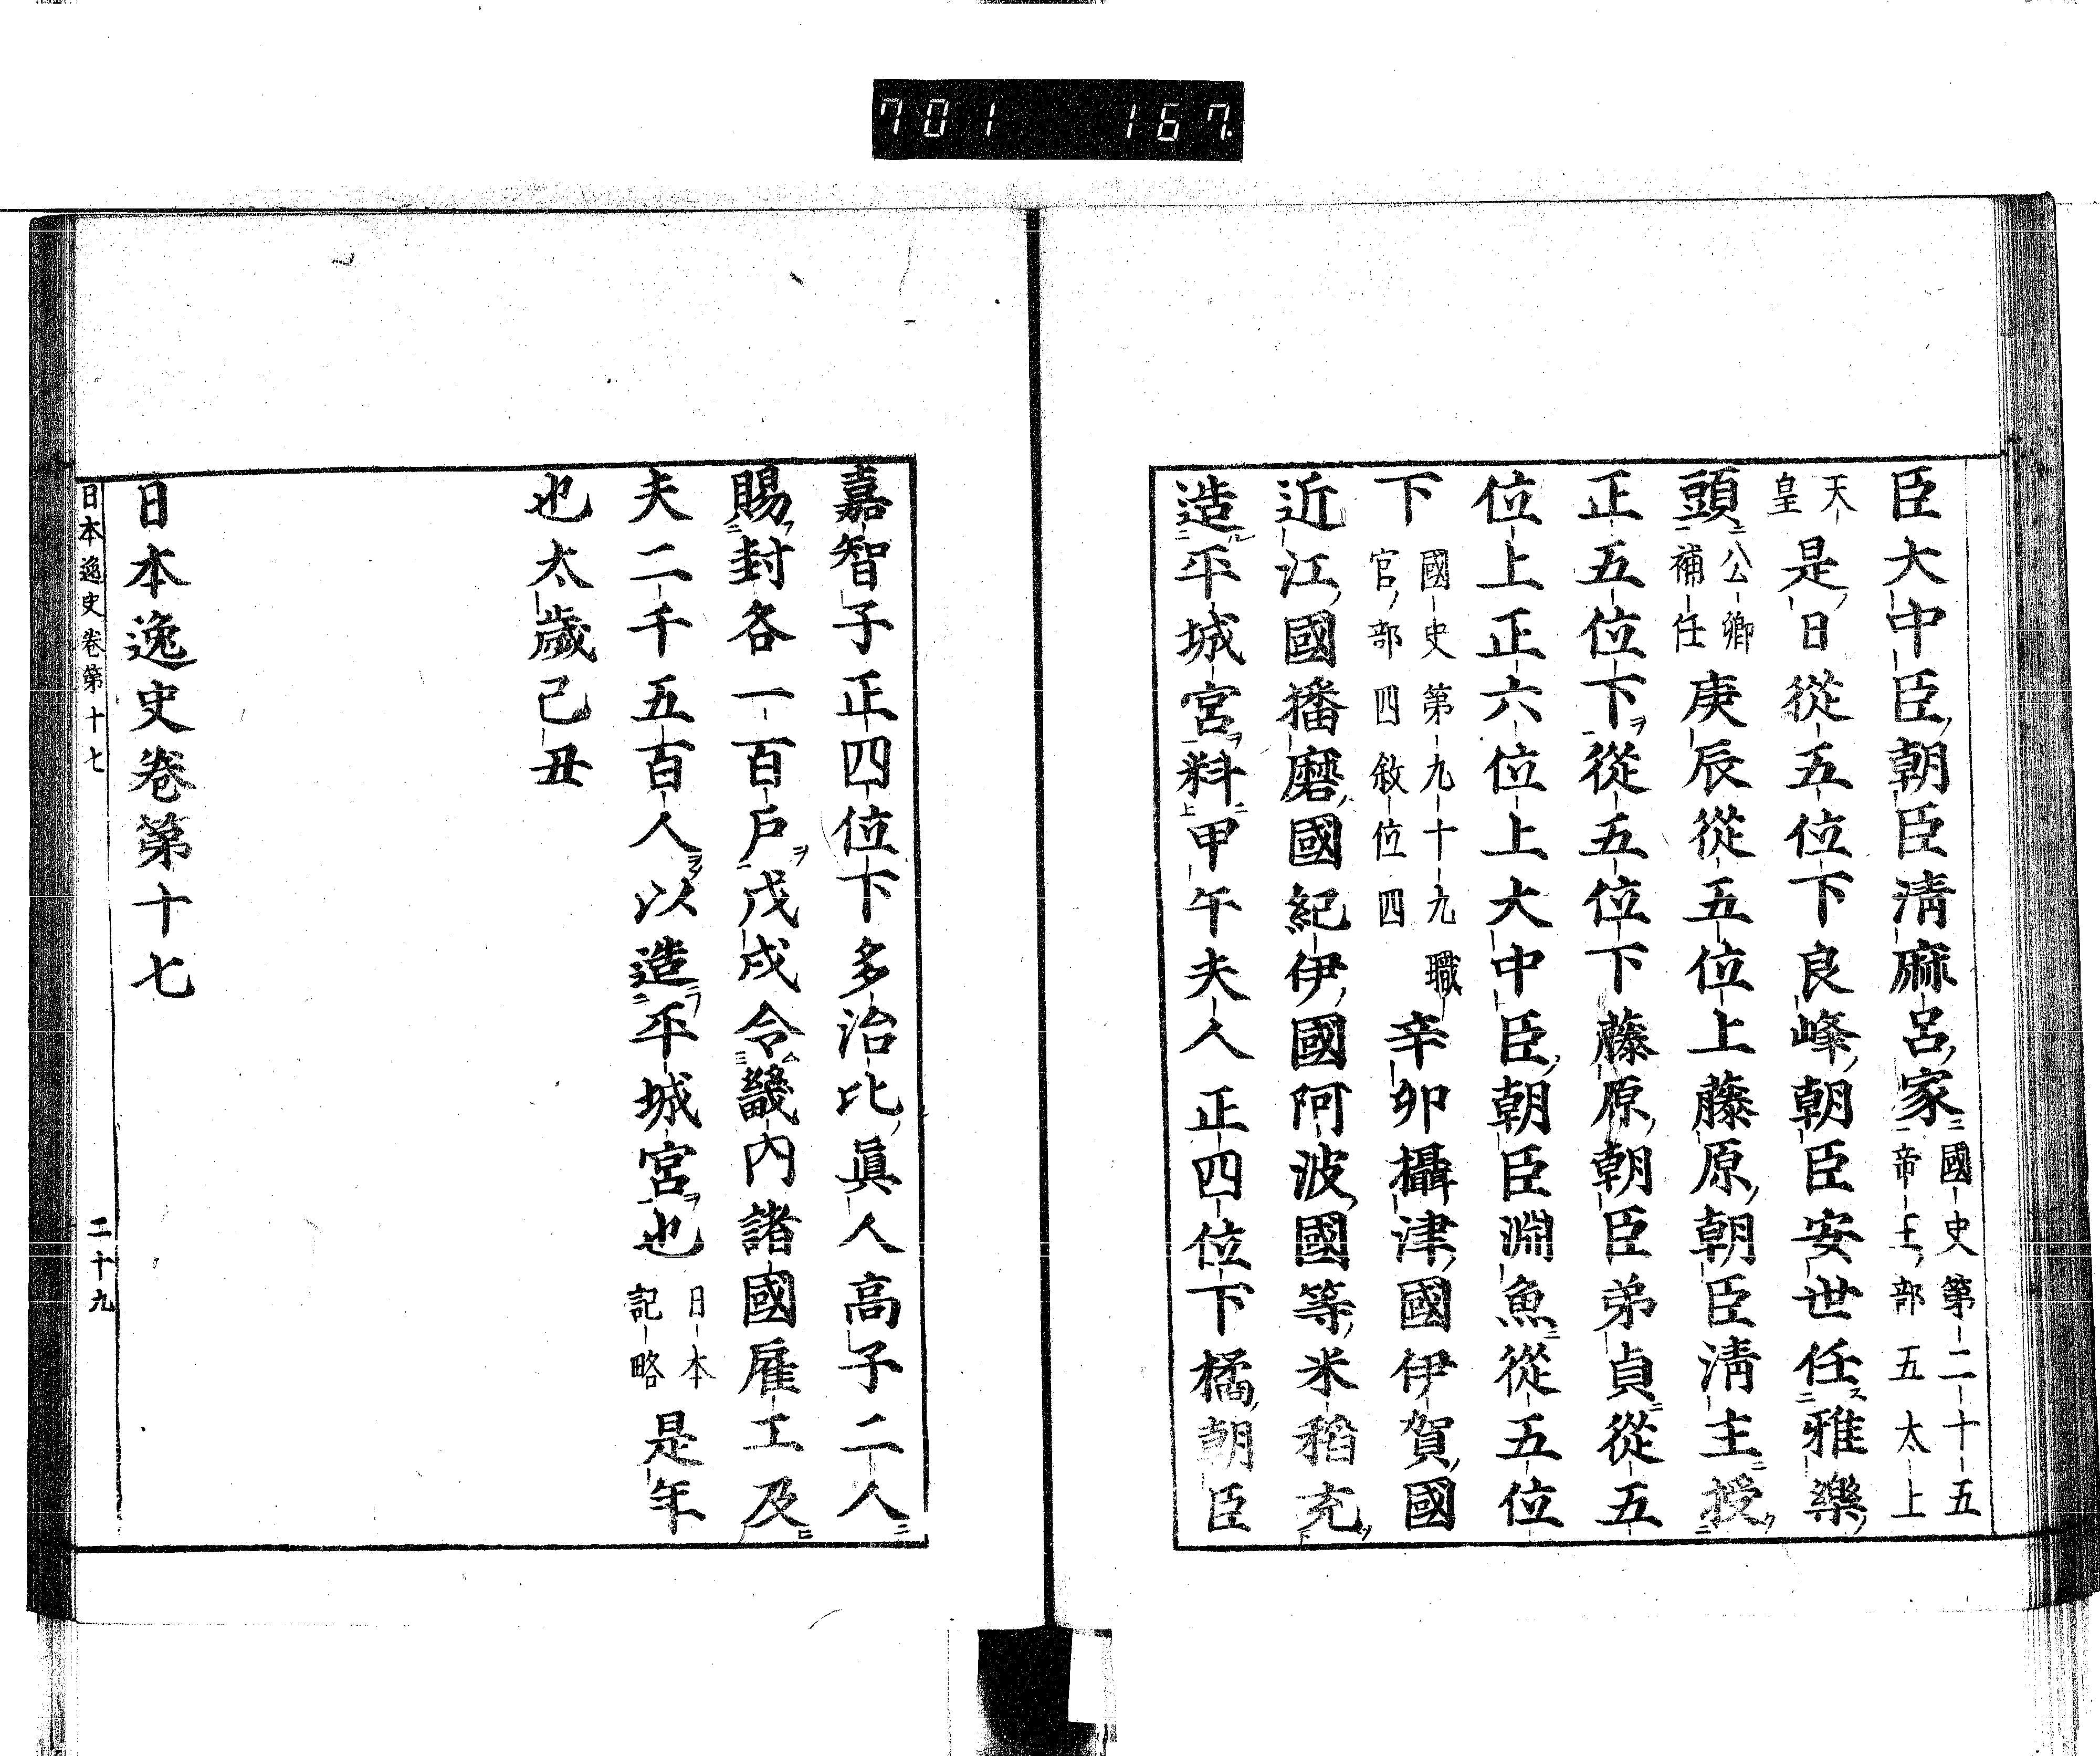 701 167.
臣大中臣朝臣淸麻呂家國史第二十五帝王部五太上
天皇是日從五位下良峰朝臣安世任雅樂
頭公卿補任庚辰從五位上藤原朝臣淸主授
正五位下從五位下藤原朝臣弟貞從五
位上正六位上大中臣朝臣淵魚從五位
下國史第九十九職官部四敘位四辛卯攝津國伊賀國
近江國播磨國紀伊國阿波國等米稻充
造平城宮料甲午夫人正四位下橘朝臣
嘉智子正四位下多治比眞人高子二人
賜封各一百戶戊戌令畿內諸國雇工及
夫二千五百人以造平城宮也日本記略是年
也太歲己丑
日本逸史卷第十七
日本逸史卷第十七 二十九